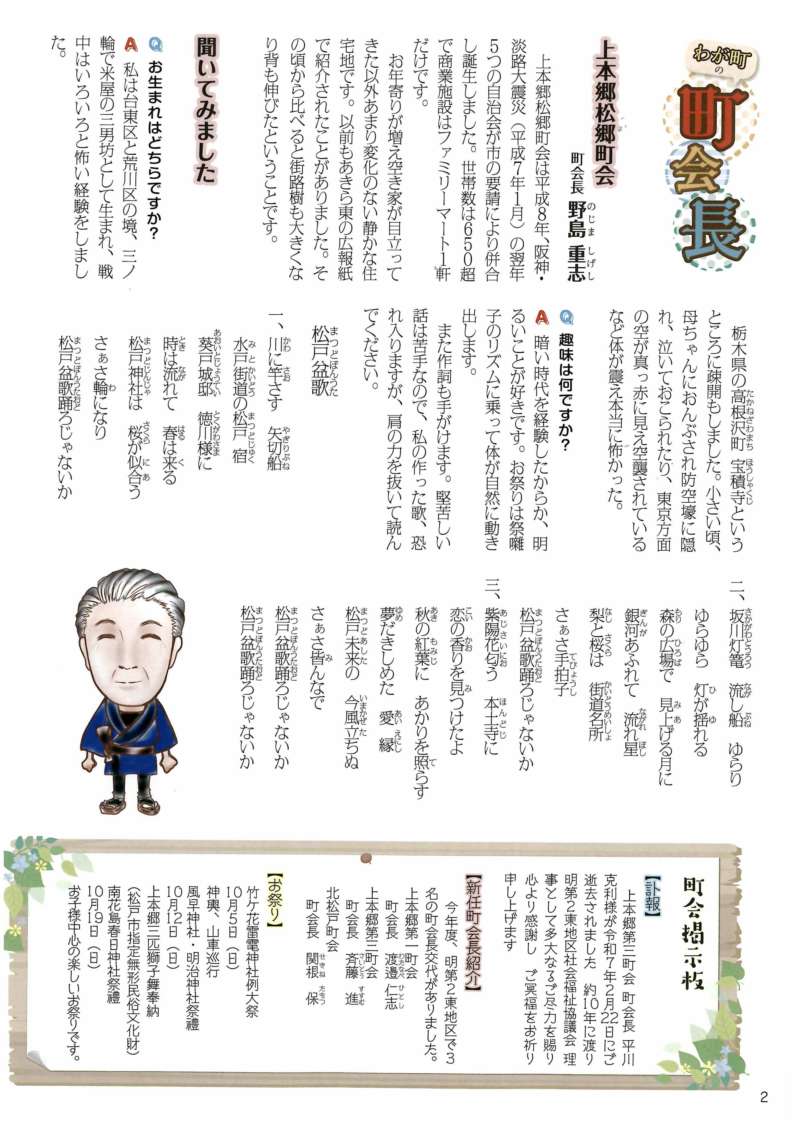 わが町の
町会長
上本郷松郷町会
町会長 野島 重志
のじま しげし
上本郷松郷町会は平成8年、阪神・
淡路大震災（平成7年1月）の翌年
5つの自治会が市の要請により併合
し誕生しました。世帯数は650超
で商業施設はファミリーマート1軒
だけです。
お年寄りが増え空き家が目立って
きた以外あまり変化のない静かな住
宅地です。以前もあきら東の広報紙
で紹介されたことがありました。そ
の頃から比べると街路樹も大きくな
り背も伸びたということです。
聞いてみました
Q お生まれはどちらですか？
A 私は台東区と荒川区の境、三ノ
輪で米屋の三男坊として生まれ、戦
中はいろいろと怖い経験をしまし
た。
栃木県の高根沢町 宝積寺という
たかねざわまち ほうしゃくじ
ところに疎開もしました。小さい頃、
母ちゃんにおんぶされ防空壕に隠
れ、泣いておこられたり、東京方面
の空が真っ赤に見え空襲されている
など体が震え本当に怖かった。
Q 趣味は何ですか？
A 暗い時代を経験したからか、明
るいことが好きです。お祭りは祭囃
子のリズムに乗って体が自然に動き
出します。
また作詞も手がけます。堅苦しい
話は苦手なので、私の作った歌、恐
れ入りますが、肩の力を抜いて読ん
でください。
松戸盆歌
まつどぼんうた
一、川に竿さす 矢切船
かわ さお やぎりぶね
水戸街道の松戸宿
みとかいどう まつどじゅく
葵戸城邸 徳川様に
とくがわさま
時は流れて 春は来る
とき なが はる く
松戸神社は 桜が似合う
まつどじんじゃ さくら にあ
さぁさ輪になり
わ
松戸盆歌踊ろじゃないか
まつどぼんうたおど
二、坂川灯篭 流し船 ゆらり
さかがわとうろう ながし ぶね
ゆらゆら 灯が揺れる
ひ ゆ
森の広場で 見上げる月に
もり ひろば みあ
銀河あふれて 流れ星
ぎんが ながれ ぼし
梨と桜は 街道名所
なし さくら かいどうめいしょ
さぁさ手拍子
てびょうし
松戸盆歌踊ろじゃないか
まつどぼんうたおど
三、紫陽花匂う 本土寺に
あじさいにお ほんどじ
恋の香りを見つけたよ
こい かお み
秋の紅葉に あかりを照らす
あき もみじ て
夢だきしめた 愛 縁
ゆめ あい えにし
松戸未来の 今風立ちぬ
まつどあした いまかぜた
さぁさ皆んなで
みん
松戸盆歌踊ろじゃないか
まつどぼんうたおど
松戸盆歌踊ろじゃないか
まつどぼんうたおど
町会掲示板
【訃報】
上本郷第三町会 町会長 平川
克利様が令和7年2月22日にご
逝去されました 約10年に渡り
明第2東地区社会福祉協議会 理
事として多大なるご尽力を賜り
心より感謝し ご冥福をお祈り
申し上げます
【新任町会長紹介】
今年度、明第2東地区で3
名の町会長交代がありました。
上本郷第一町会
町会長 渡邉 仁志
わたなべ ひとし
上本郷第三町会
町会長 斉藤 進
さいとう すすむ
北松戸町会
町会長 関根 保
せきね たもつ
【お祭り】
竹ケ花雷電神社例大祭
10月5日（日）
神輿、山車巡行
風早神社・明治神社祭禮
10月12日（日）
上本郷三匹獅子舞奉納
（松戸市指定無形民俗文化財）
南花島春日神社祭禮
10月19日（日）
お子様中心の楽しいお祭りです。
2